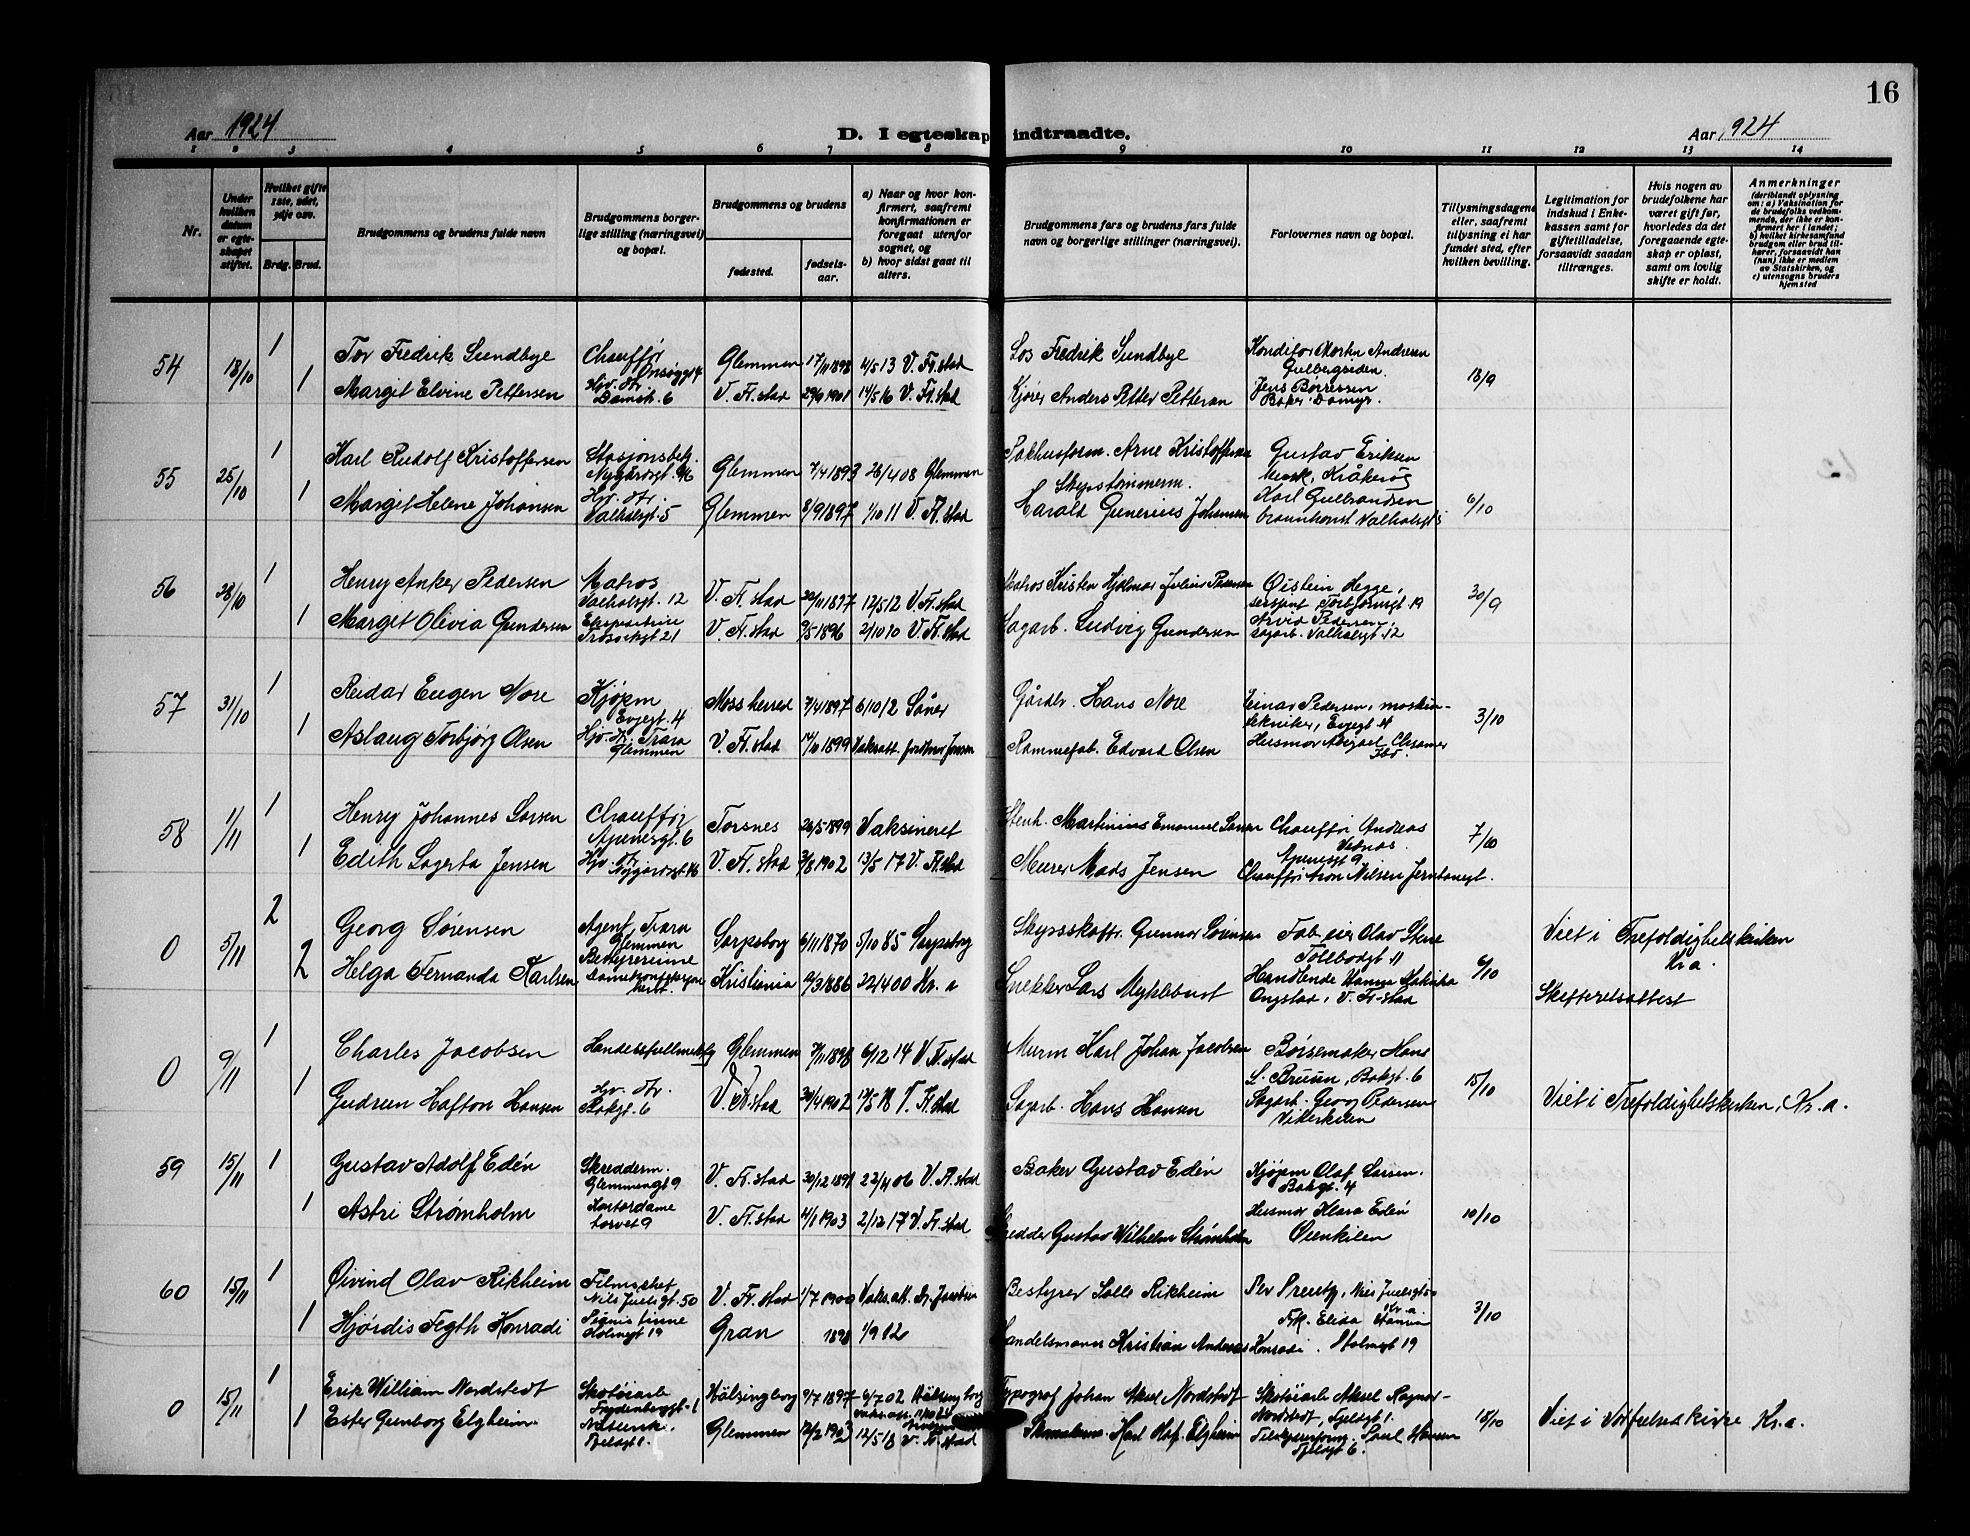 16
Aar 1924
D. I egteskap indtraadte.
Aar 1924
1 2 3 4 5 6 7 8 9 10 11 12 13 14
Nr.
Under hvilken datum er egteskapet stiftet.
Hvilket gifte 1ste, 2det, 3dje osv.
Brdg. Brud.
Brudgommens og brudens fulde navn
Brudgommens borgerlige stilling (næringsvei) og bopæl.
Brudgommens og brudens
fødested.
fødselsaar.
a) Naar og hvor konfirmert, saafremt konfirmationen er foregaat utenfor sognet, og
b) hvor sidst gaat til alters.
Brudgommens fars og brudens fars fulde navn og borgerlige stillinger (næringsvei).
Forlovernes navn og bopæl.
Tillysningsdagene eller, saafremt tillysning ei har fundet sted, efter hvilken bevilling.
Legitimation for indskud i Enkekassen samt for giftetilladelse, forsaavidt saadan tiltrænges.
Hvis nogen av brudefolkene har været gift før, hvorledes da det foregaaende egteskap er opløst, samt om lovlig skifte er holdt.
Anmerkninger
(deriblandt oplysning om: a) Vaksination for de brudefolks vedkommende, der ikke er konfirmert her i landet; b) hvilket kirkesamfund brudgom eller brud tilhører, forsaavidt han (hun) ikke er medlem av Statskirken, og c) utensogns bruders hjemsted
54 18/10 1 Tor Fredrik Sundbye Chauffør Onsøygt 4 Glemmen 17/11 1898 4/5 13 V. Fr.stad Los Fredrik Sundbye Konditor Morten Andresen
1 Margit Elvine Pettersen Hjv. dtr. Damst. 6 V. Fr.stad 29/9 1901 14/5 16 V. Fr.stad Kjører Anders Petter Petters​en Jens Børressen Baker 18/9
55 25/10 1 Karl Rudolf Kristoffersen Stasjonsbetj. Nygårdsgt. Glemmen 7/4 1893 26/4 08 Glemmen Pakhusform. Arne Kristoffersen Gustav Eriksen Kråkerøy
1 Margit Helene Johansen Hjv. dtr. Valhalsgt. 5 Glemmen 8/9 1897 1/10 11 V. Fr.stad Skipstømmerm. Harald Gunerius Johansen Karl Gulbrandsen 6/10
56 28/10 1 Henry Anker Pedersen Matros Valhalsgt. 12 V. Fr.stad 22/11 1897 12/5 12 V. Fr.stad Matros Kristen Hjalmar Julius Pedersen Øistein Hegge, sersjant Torbjørnsgt. 19
1 Margit Olivia Gundersen Ekspeditrise Trosvikgt. 21 V. Fr.stad 9/5 1896 2/10 10 V. Fr.stad Sagarb. Ludvig Gundersen Arvid Pedersen, sagarb. Valhalsgt. 12 30/9
57 31/10 1 Reidar Eugen Nore Kjøpm. Evjegt. 4 Moss herred 7/4 1897 6/10 12 Såner Gårdbr. Hans Nore Einar Pedersen, maskintekniker, Evjegt 4
1 Aslaug Torbjørg Olsen Hjv. dtr. Trara Glemmen V. Fr.stad 14/11 1899 Vaksatt. Rammefab. Edvard Olsen Husmor 3/10
58 1/11 1 Henry Johannes Larsen Chauffør Apenesgt. 6 Torsnes 26/5 1899 Vaksineret Stenh. Martinius Emanuel Larsen Chauffør Andreas Apenesgt 9
1 Edith Lagerta Jensen Hjv. dtr. Nygårdsgt. V. Fr.stad 3/8 1902 13/5 17 V. Fr.stad Murer Mads Jensen Chauffør Aron Nilsen 7/10
0 5/11 2 Georg Sørensen Agent, Trara Glemmen Sarpsborg 6/11 1870 5/10 85 Sarpsborg Skysskaff. Gunnar Sørensen Fab. eier Olav Stene Tollbodgt 11
2 Helga Fernanda Karlsen Bestyrerinne Kristiania 9/3 1886 22/4 00 Kr. a Snekker Lars Myklebust Handlende V. Fr-stad 6/10 Viet i Trefoldighetskirken Kr.a. Skifteretsattest
0 9/11 1 Charles Jacobsen Handelsfullmektig Glemmen 7/11 1898 6/12 14 V. Fr.stad Murm Karl Johan Jacobsen Børsemaker Hans L. Bruun, Bakgt. 6
1 Gudrun Hafton Hansen Hjv. dtr. Bakgt. 6 V. Fr.stad 30/4 1902 V. Fr.stad Sagarb. Hans Hansen Sagarb. Georg Pedersen Vikerkilen 15/10 Viet i Trefoldighetskirken, Kr.a.
59 15/11 1 Gustav Adolf Edén Skredderm. Glemmengt 9 V. Fr.stad 30/12 1891 22/4 06 V. Fr.stad Baker Gustav Edén Kjøpm Olaf Larsen. Bakgt. 4
1 Astri Strømholm Kontordame torvet 9 V. Fr.stad 4/1 1903 2/12 17 V. Fr.stad Skredder Gustav Wilhelm Strømholm Husmor Klara Edén Ørenkilen 10/10
60 15/11 1 Øivind Olav Rikheim Filmschef Nils Juelsgt. 50 V. Fr.stad 1/7 1900 Vaks.att. Dr. Jacobsen Bestyrer Rikheim Per
1 Hjørdis Fegth Konradi Holmegt 19 Gran 1898 1/9 12 Handelsmann Kristian Andreas Konradi Frk. Elida Holmegt 19 3/10
0 15/11 1 Erik William Nordstedt Skotøiarb Hälsingborg 9/7 1897 6/7 02 Hälsingborg Typograf Johan Aksel Nordstedt Skotøiarb Aksel Ragnar Nordstedt, Fjeldgt 1.
1 Ester Gunborg Elgheim Fjeldgt 1. Glemmen 12/2 1903 12/5 18 V. Fr.stad Karl Olaf Elgheim Paul Hansen Fjeldgt 6. 15/10 Viet i Vårfruelsens kirke Kr.a.